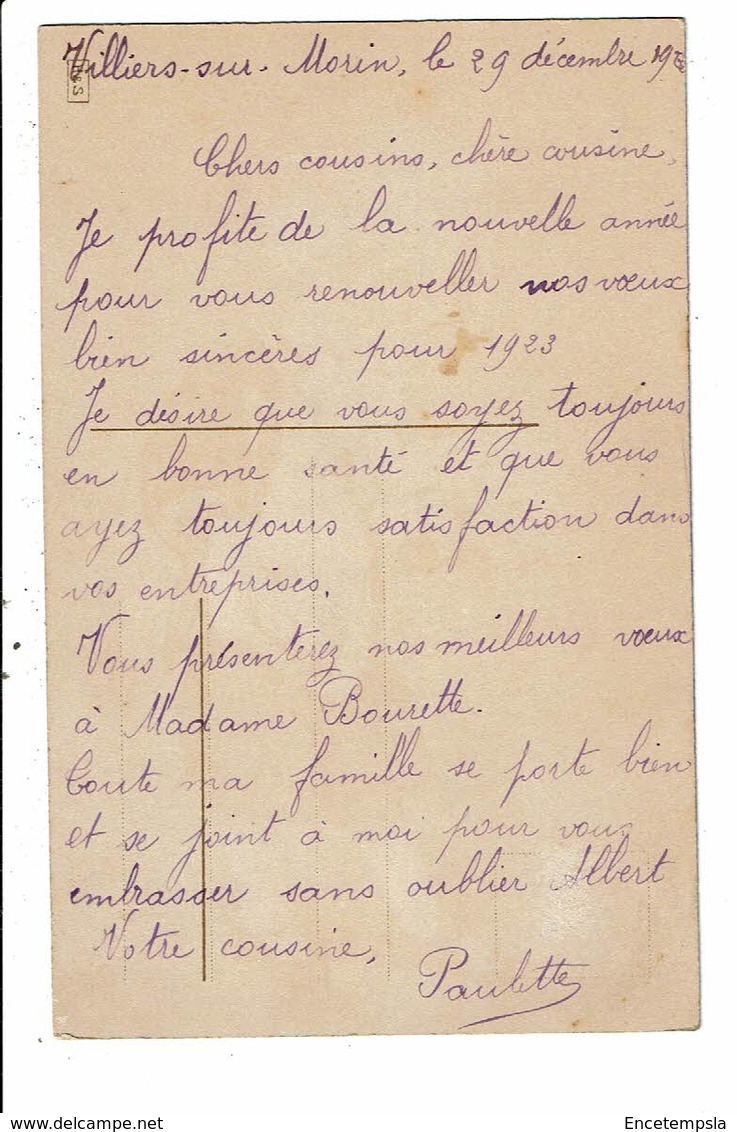 Villiers-sur-Morin, le 29 décembre 192
Chers cousins, chère cousine,
Je profite de la nouvelle année
pour vous renouveller nos vœux
bien sincères pour 1923
Je désire que vous soyez toujours
en bonne santé et que vous
ayez toujours satisfaction dans
vos entreprises.
Vous présenterez nos meilleurs vœux
à Madame Bourette.
Toute ma famille se porte bien
et se joint à moi pour vous
embrasser sans oublier Albert
Votre cousine,
Paulette
delcampe.net
Encetempsla